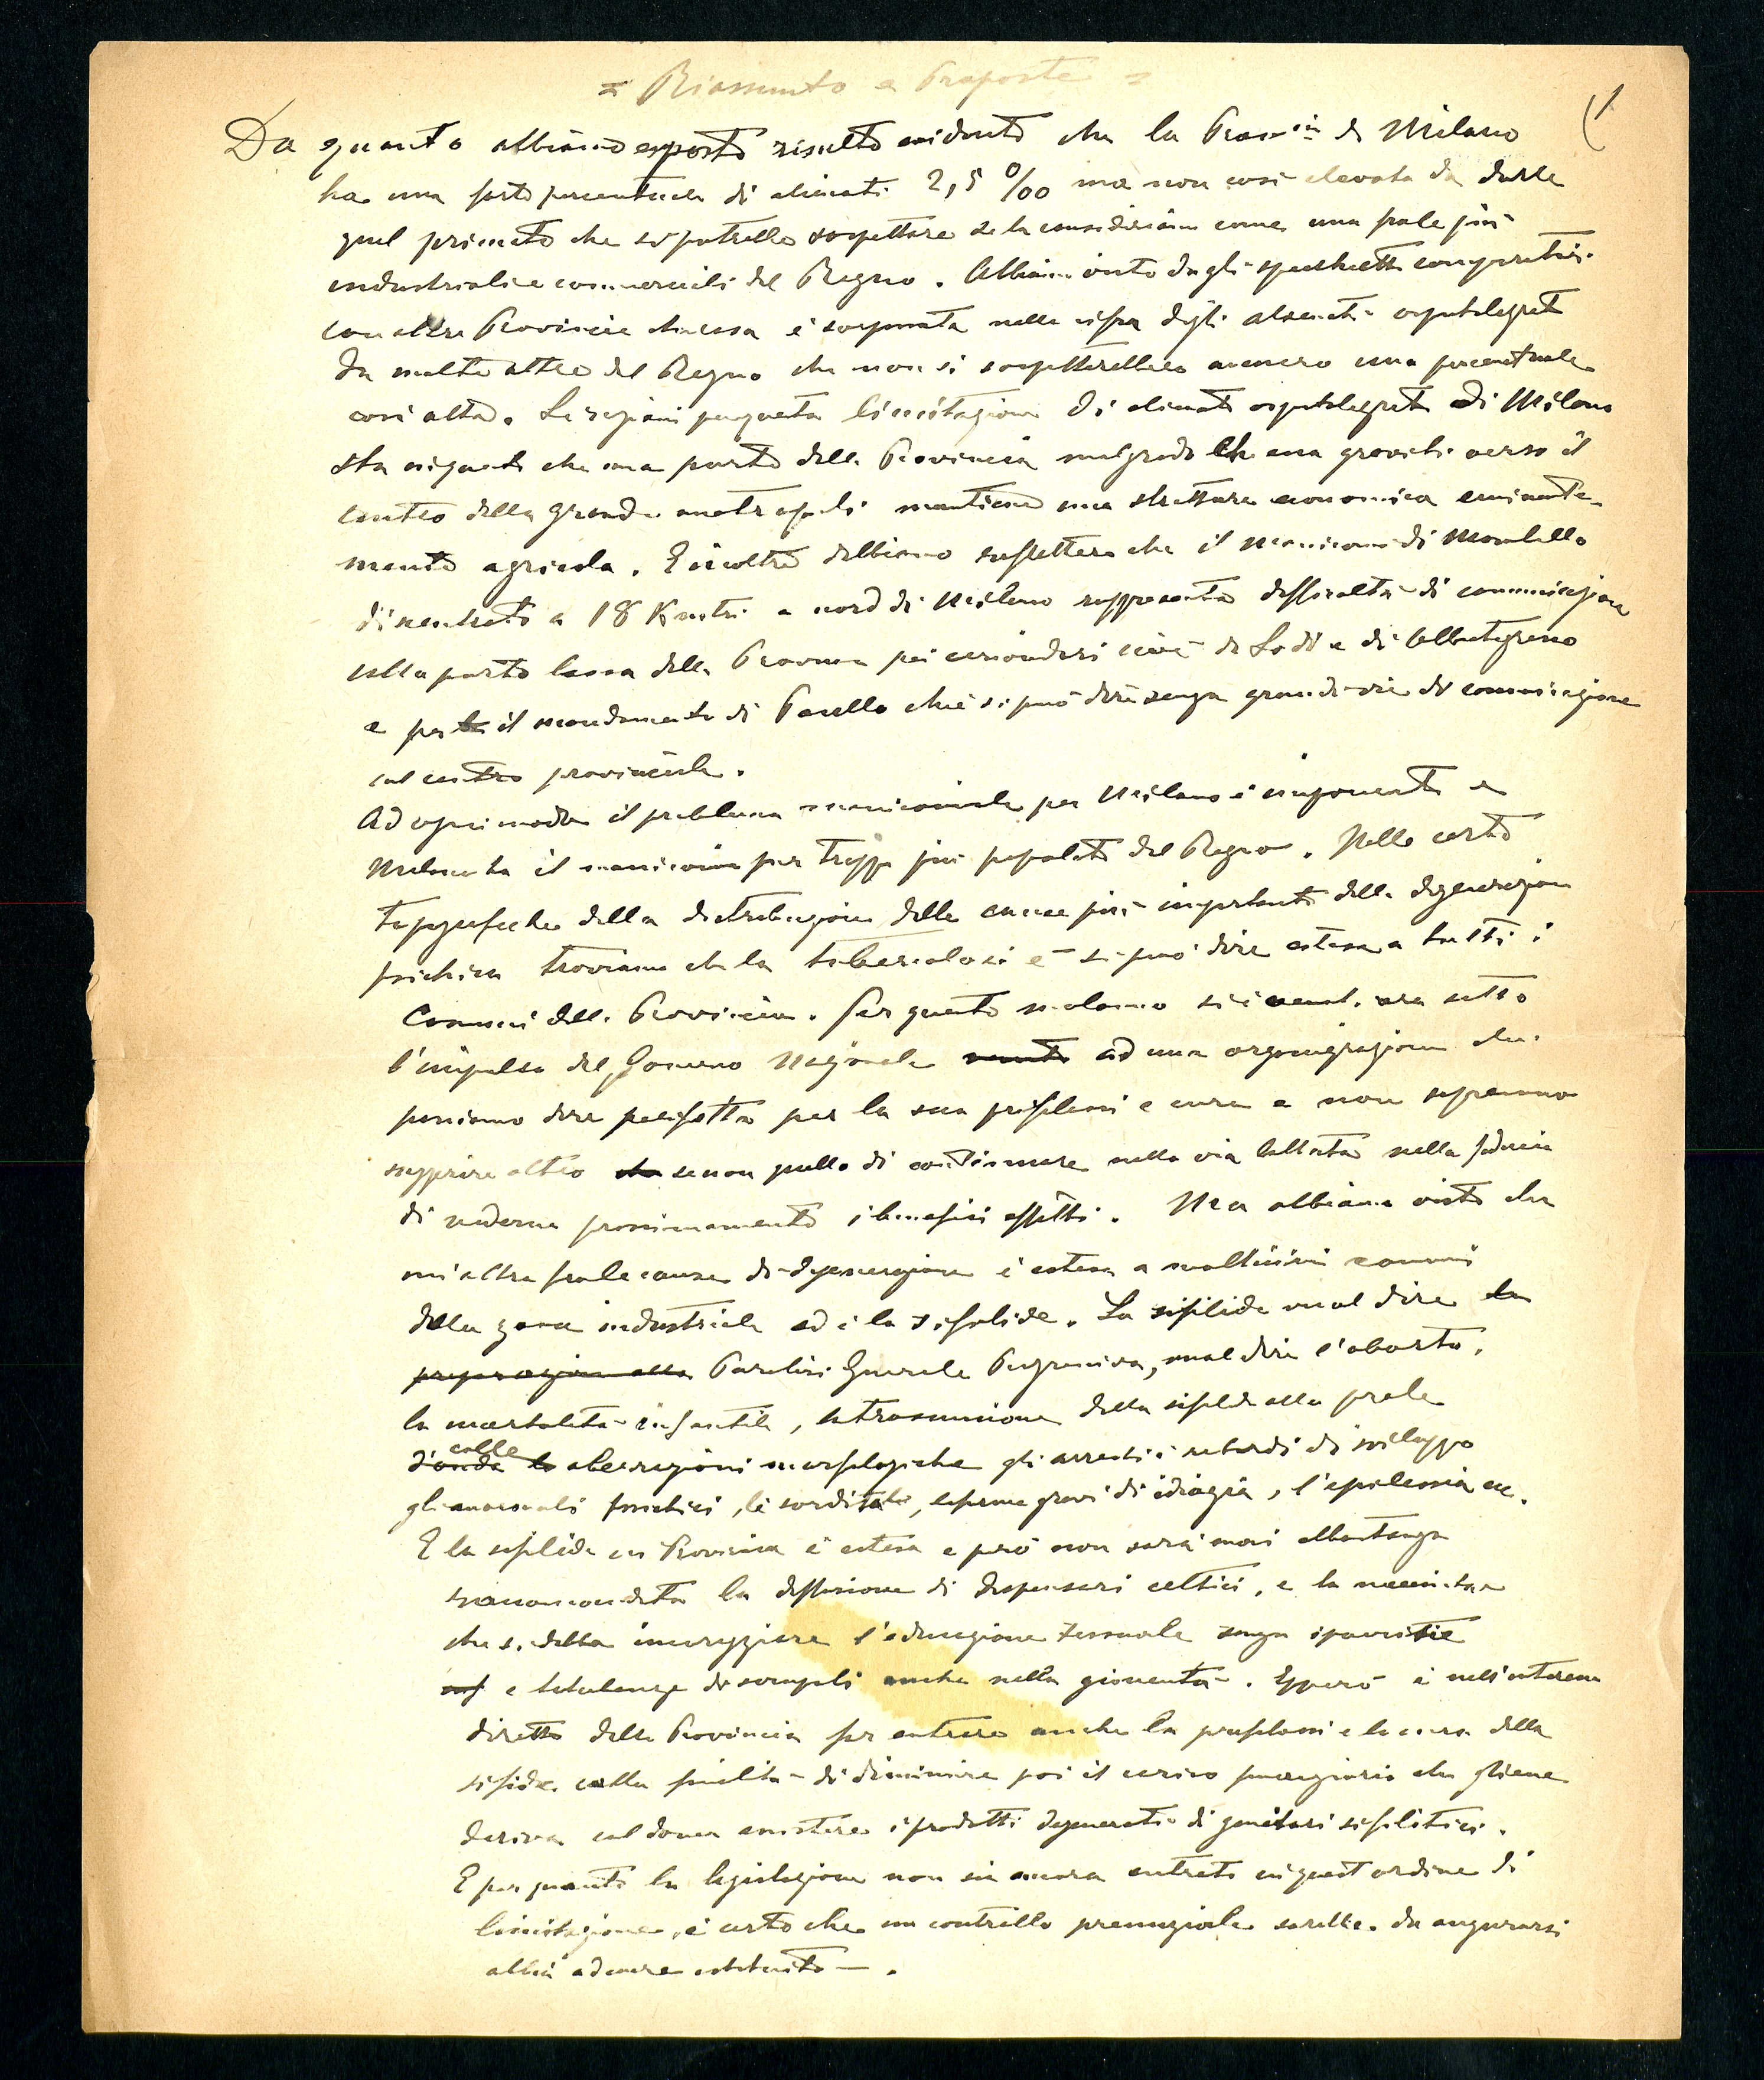 = Riassunto e Proposte =
(1
Da quanto abbiamo esposto risulta evidente che la Provin.ia di Milano
ha una forte percentuale di alienati 2,5 ‰ ma non così elevata da darle
quel primato che si potrebbe sospettare se la consideriamo come una fra le più
industriali e commerciali del Regno. Abbiamo visto dagli specchietti comparativi
con altre Provincie ch'essa è sorpassata nella cifra degli alienati ospitalizzati
da molte altre del Regno che non si sospetterebbe avessero una percentuale
così alta. Le ragioni per questa limitazione di alienati ospitalizzati di Milano
sta nel fatto che una parte della Provincia malgrado che essa graviti verso il
centro della grande metropoli mantiene una struttura economica eminente-
mente agricola. E inoltre dobbiamo riflettere che il manicomio di Mombello
decentrato a 18 Kmtri a nord di Milano rappresenta difficoltà di comunicazione
colla parte bassa della Provincia pei circondari cioè di Lodi e di Abbiategrasso
e per il mandamento di Paullo che è si può dire senza grandi vie di comunicazione
col centro provinciale.
Ad ogni modo il problema manicomiale per Milano è imponente e
Milano ha il manicomio pur troppo più popolato del Regno. Nelle carte
topografiche della distribuzione delle cause più importanti della degenerazione
psichica troviamo che la tubercolosi è si può dire estesa a tutti i
Comuni della Provincia. Per questo malanno si è venuti ora sotto
l'impulso del Governo Nazionale ad una organizzazione che
possiamo dire perfetta per la sua profilassi e cura e non sapremmo
suggerire altro se non quello di continuare nella via battuta nella fiducia
di vederne prossimamente i benefici effetti. Ma abbiamo visto che
un'altra fra le cause di degenerazione è estesa a moltissimi comuni
della zona industriale ed è la sifilide. La sifilide vuol dire la
preparazione alla Paralisi Generale Progressiva, vuol dire l'aborto,
la mortalità infantile, la trasmissione della sifilide alla prole
colle aberrazioni morfologiche gli arresti i ritardi di sviluppo
gli anormali psichici, le sordità, le forme gravi di idiozia, l'epilessia ec.
E la sifilide in Provincia è estesa e però non sarà mai abbastanza
raccomandata la diffusione di dispensari celtici, e la necessità
che si debba incoraggiare l'educazione sessuale senza
e titubanze di scrupoli anche nella gioventù. Epperò è nell'interesse
diretto della Provincia far entrare anche la profilassi e la cura della
sifilide colla finalità di diminuire poi il carico finanziario che gliene
deriva col dover assistere i prodotti degenerati di genitori sifilitici.
E per quanto la legislazione non sia ancora entrata in quest'ordine di
limitazione, è certo che un controllo prenuziale sarebbe da augurarsi
abbia ad essere istituito —.